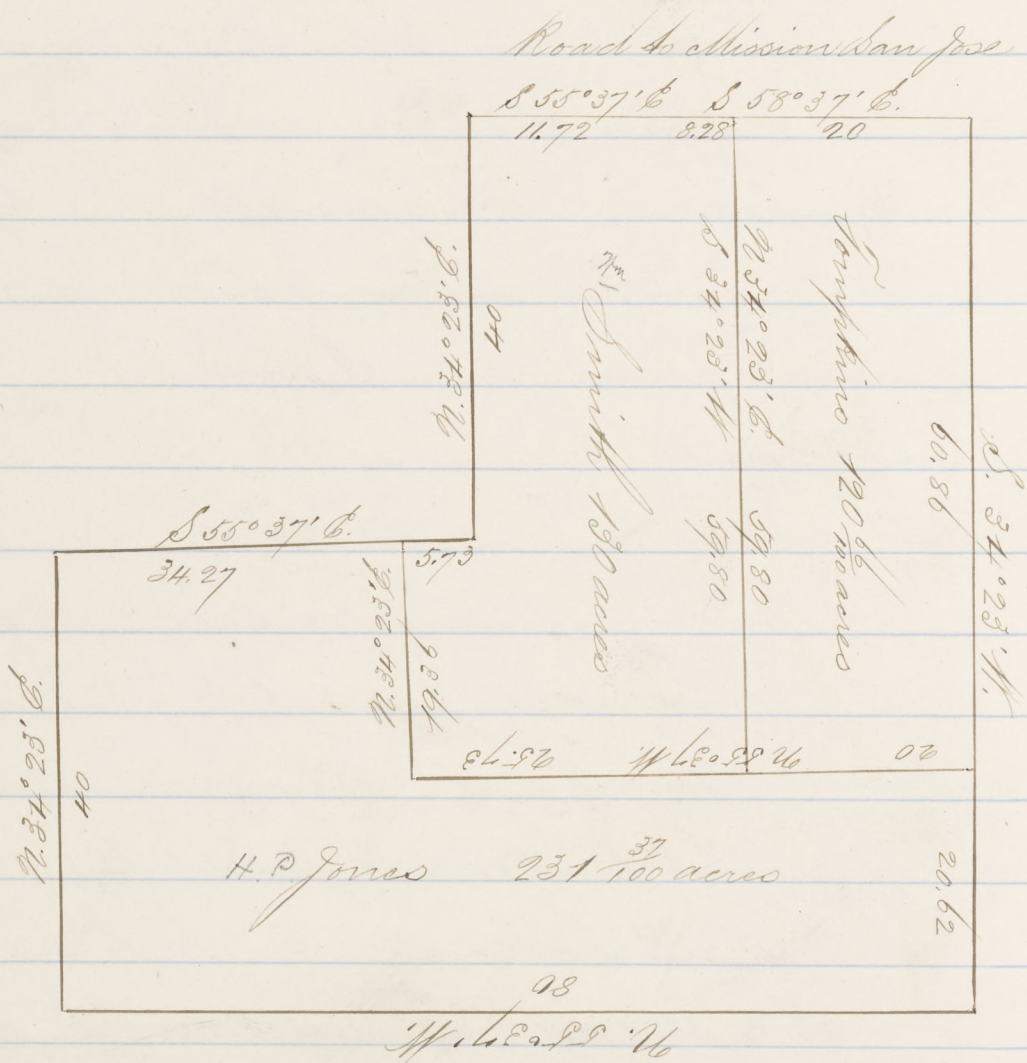 Road to Mission San Jose
S 55° 37' E. S 58° 37' E.
11.72 8.28 20
N. 34° 23' E.
40
Wm Smith 130 acres
S 34° 23' W 59.80
N 34° 23' E. 59.80
Tompkins 120 66/100 acres
60.86
S. 34° 23' W.
S 55° 37' E.
34.27
5.73
N. 34° 23' E.
19.36
25.73 N 55° 37 W. 20
N. 34° 23' E.
40
H. P. Jones 231 37/100 acres
20.62
80
N. 55° 37' W.